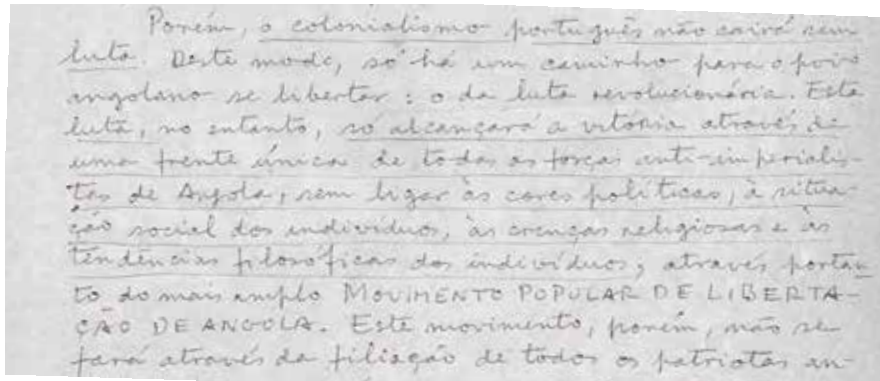 Porém, o colonialismo português não cairá sem
luta. Deste modo, só há um caminho para o povo
angolano se libertar: o da luta revolucionária. Esta
luta, no entanto, só alcançará a vitória através de
uma frente única de todas as forças anti-imperialis-
tas de Angola, sem ligar às cores políticas, à situa-
ção social dos indivíduos, às crenças religiosas e às
tendências filosóficas dos indivíduos; através portan-
to do mais amplo MOVIMENTO POPULAR DE LIBERTA-
ÇÃO DE ANGOLA. Este movimento, porém, não se
fará através da filiação de todos os patriotas an-